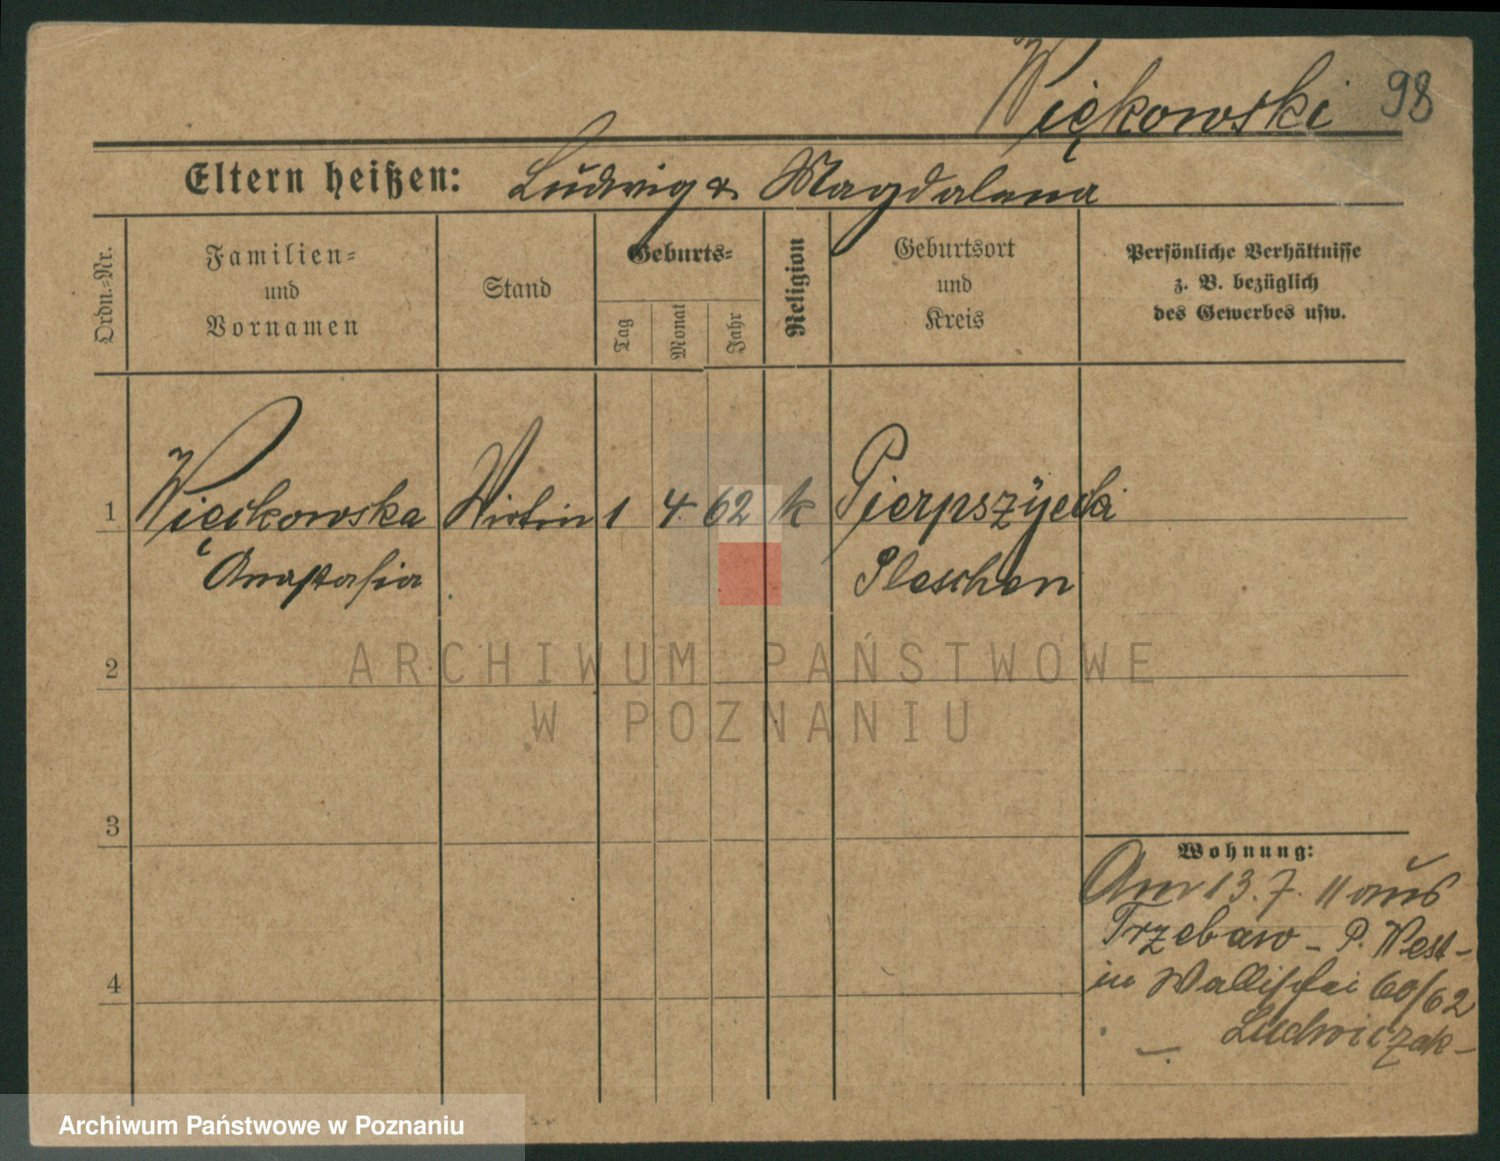 Więkowski 98
Eltern heißen: Ludwig & Magdalena
Ordn.=Nr.
Familien=
und
Vornamen
Stand
Geburts=
Tag
Monat
Jahr
Religion
Geburtsort
und
Kreis
Persönliche Verhältnisse
z. B. bezüglich
des Gewerbes usw.
1 Więckowska Wirtin 1 4. 62 k
Anastasia Pleschen
2
ARCHIWUM PAŃSTWOWE
W POZNANIU
3
Wohnung:
Am 13.7.11 aus
Trzebaw - P. West-
in Wallischei 60/62
Ludwiczak -
4
Archiwum Państwowe w Poznaniu